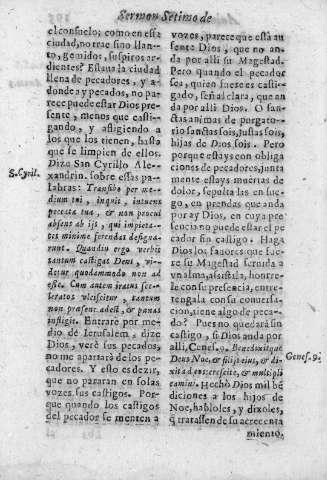 Sermon Setimo de
el consuelo; como en esta
ciudad, no trae sino llan-
to, gemidos, suspiros ar-
dientes? Estaua la ciudad
llena de pecadores, y a-
donde ay pecados, no pa-
rece puede estar Dios pre-
sente, menos que casti-
gando, y afligiendo a
los que los tienen, hasta
que se limpien de ellos.
Dize San Cyrillo Ale-
xandrin. sobre estas pa-
S. Cyril.
labras: Transibo per me-
dium tui, inquit, intuens
peccata tua, & non procul
absent ab ijs, qui impieta-
tis minime ferendas designa-
runt. Quandiu ergo verbis
tantum castigat Deus, vi-
detur quodammodo non ad
esse. Cum autem iratus sce-
leratos vlciscitur, tantum
non præsens adest, & pœnas
infligit. Entrarè por me-
dio de Ierusalem, dize
Dios, verè sus pecados,
no me apartarè de los pe-
cadores. Y esto es dezir,
que no pararan en solas
vozes, sus castigos. Por-
que quando los castigos
del pecador se menten a
vozes, parece que està au
sente Dios, que no an-
da por alli su Magestad.
Pero quando el pecador
es, quien fuere es casti-
gado, señal clara, que an
da por alli Dios. O san-
ctas animas de purgato-
rio sanctas sois, justas sois,
hijas de Dios sois. Pero
porque estays con obliga
ciones de pecadores, junta
mente estays muertas de
dolor, sepultadas en fue-
go, en prendas que anda
por ay Dios, en cuya pre
sencia no puede estar el pe
cador sin castigo. Haga
Dios los fauores que fue-
re su Magestad seruida a
vn alma, asistala, honrre-
le con su presencia, entre-
tengala con su conuersa-
cion, tiene algo de peca-
do? Pues no quedarà sin
castigo, si Dios anda por
alli, Genes. 9. Benedixitque
Genes. 9.
Deus Noe, & filijs eius, & di-
xit ad eos: crescite, & multipli
camini. Hechò Dios mil bē
diciones a los hijos de
Noe, habloles, y dixoles,
q̃ tratassen de su acrecenta
miento.